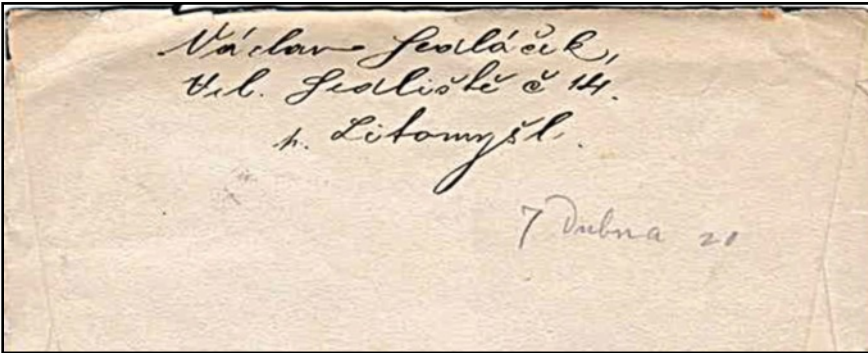 Václav Sedláček,
Vel. Sedliště č 14.
p. Litomyšl.
7 Dubna 20